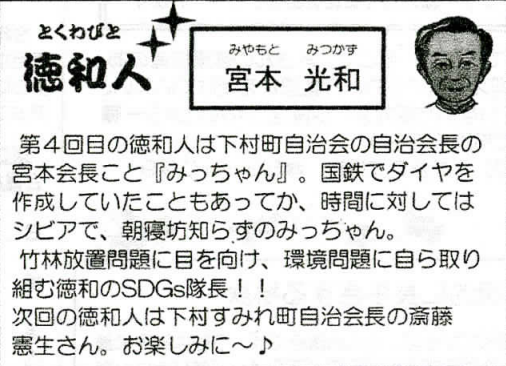 とくわびと
徳和人
みやもと みつかず
宮本 光和
第4回目の徳和人は下村町自治会の自治会長の
宮本会長こと『みっちゃん』。国鉄でダイヤを
作成していたこともあってか、時間に対しては
シビアで、朝寝坊知らずのみっちゃん。
竹林放置問題に目を向け、環境問題に自ら取り
組む徳和のSDGs隊長!!
次回の徳和人は下村すみれ町自治会長の斎藤
憲生さん。お楽しみに~♪